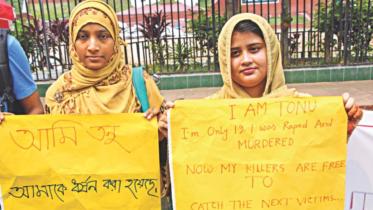 আমি তনু
আমাকে ধর্ষন করা হয়েছে
I AM TONU
I'm Only 19 I was Raped And
MURDERED
NOW MY KILLERS ARE FREE
TO
CATCH THE NEXT VICTIMS...